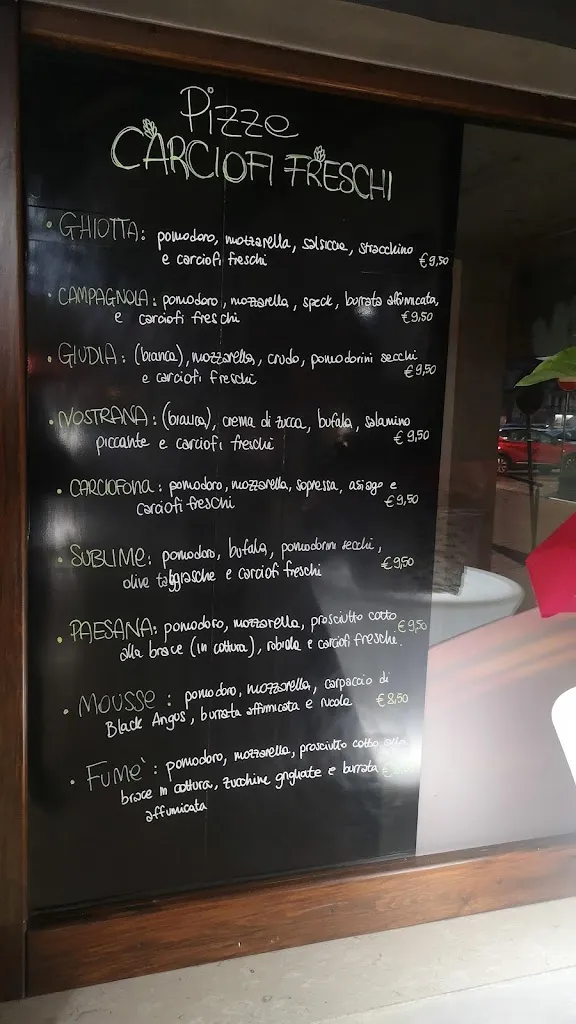 Pizze
CARCIOFI FRESCHI
• GHIOTTA: pomodoro, mozzarella, salsiccia, stracchino
e carciofi freschi € 9,50
• CAMPAGNOLA: pomodoro, mozzarella, speck, burrata affumicata,
e carciofi freschi € 9,50
• GIUDIA: (bianca), mozzarella, crudo, pomodorini secchi
e carciofi freschi € 9,50
• NOSTRANA: (bianca), crema di zucca, bufala, salamino
piccante e carciofi freschi € 9,50
• CARCIOFONA: pomodoro, mozzarella, sopressa, asiago e
carciofi freschi € 9,50
• SUBLIME: pomodoro, bufala, pomodorini secchi,
olive taggiasche e carciofi freschi € 9,50
• PAESANA: pomodoro, mozzarella, prosciutto cotto € 9,50
alla brace (in cottura), robiola e carciofi freschi.
• MOUSSE: pomodoro, mozzarella, carpaccio di
Black Angus, burrata affumicata e rucola € 8,50
• FUME': pomodoro, mozzarella, prosciutto cotto alla
brace in cottura, zucchine grigliate e burrata €
affumicata